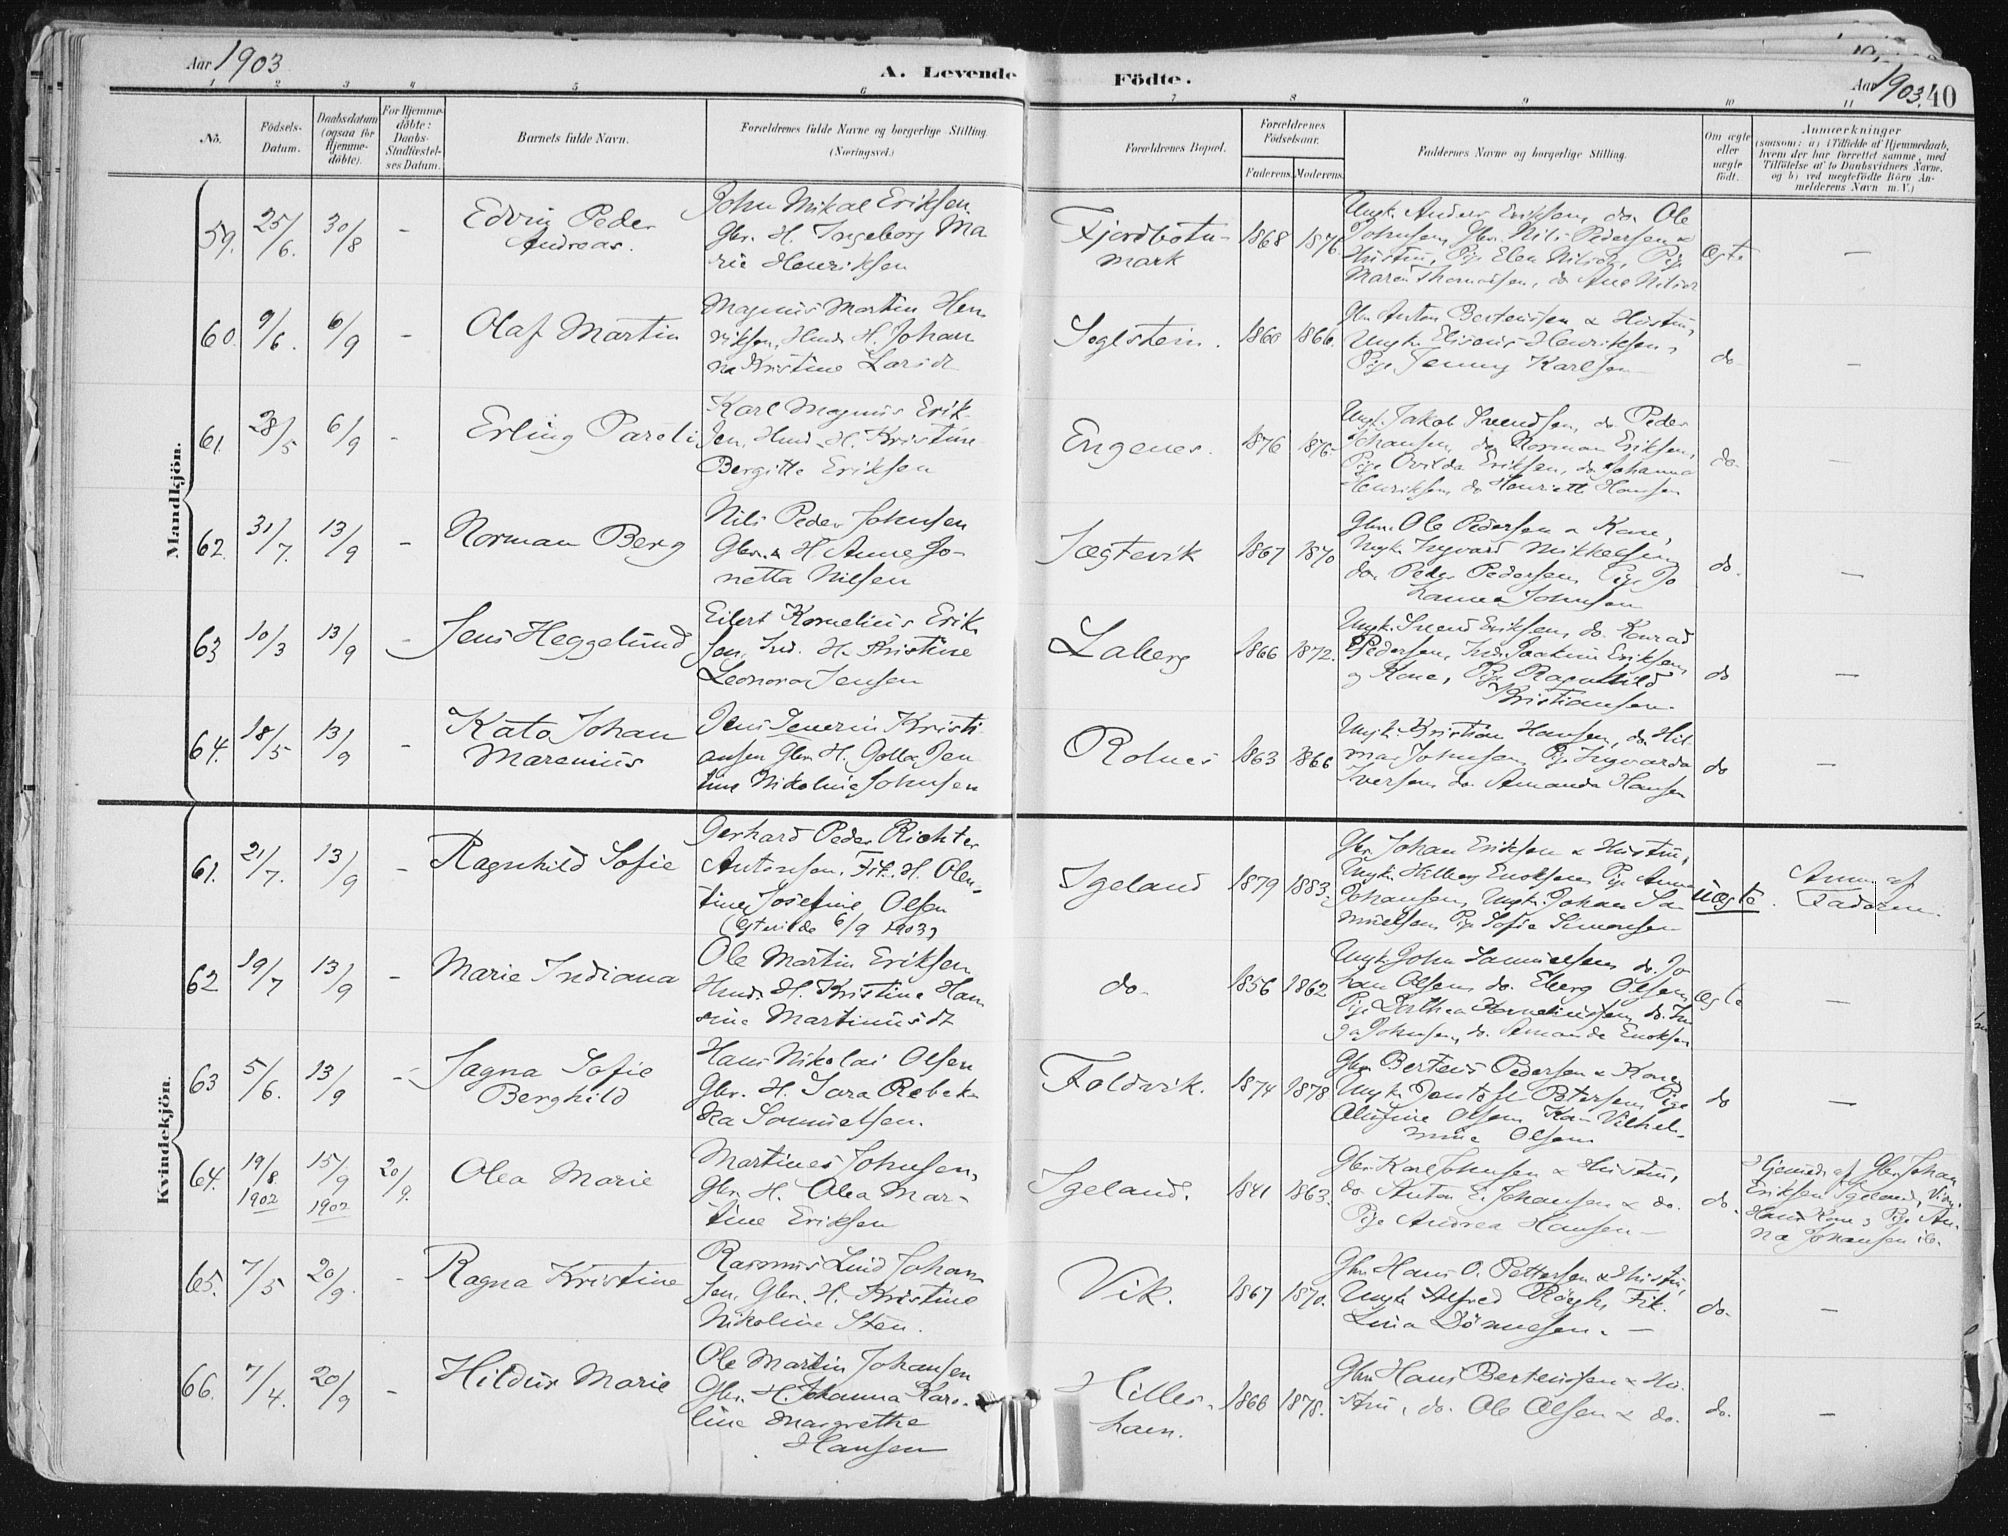 Aar 1903
A. Levende Födte.
Aar 1903. 40
1 2 3 4 5 6 7 8 9 10 11
No.
Födsels-
Datum.
Daabsdatum
(ogsaa for
Hjemme-
döbte).
For Hjemme-
döbte:
Daabs-
Stadfæstel-
ses Datum.
Barnets fulde Navn.
Forældrenes fulde Navne og borgerlige Stilling.
(Næringsvei.)
Forældrenes Bopæl.
Forældrenes
Födselsaar.
Faderens. Moderens.
Faddernes Navne og borgerlige Stilling.
Om ægte
eller
uægte
födt.
Anmærkninger
(saasom: a) i Tilfælde af Hjemmedaab,
hvem der har forrettet samme, med
Tilföielse af to Daabsvidners Navne.
og b) ved uægtefödte Börn An-
melderens Navn m. V.)
Mandkjön.
59. 25/6. 30/8 -
Edvin Peder
Andreas.
John Mikal Eriksen
Gbr. H. Ingeborg Ma
rie Henriksen
Fjordbotn-
mark
1868 1876
Ungk. Anders Eriksen, do. Ole
Johnsen, Gbr. Nils Pedersen &
Hustru, Pige Elen Nilsen, Pige
Maren Thomassen, do Ane Nilsen
ægte
-
60. 9/6. 6/9 -
Olaf Martin
Magnus Martin Hen
riksen, Husm. H. Johan
na Kristine Larsdt.
Soglstein.
1860 1866.
Gbr. Anton Berteussen & Hustru,
Ungk. Henriksen,
Pige Jenny Karlsen
do
-
61. 28/5 6/9 -
Erling Pareli
Karl Magnus Erik-
sen, Husm. H. Kristine
Bergitte Eriksen
Engenes.
1876 1876.
Ungk. Jakob Svendsen, do Peder
Johansen, do Norman Eriksen,
Pige Ovilda Eriksen, do Johanna
Henriksen, do Henriette Hansen
do.
-
62. 31/7. 13/9 -
Norman Berg
Nils Peder Johnsen
Gbr. & H. Anne Jo-
netta Nilsen
Sægtevik
1867 1870
Gbr. Ole Pedersen & Kone,
Ungk. Ingvard Mikkelsen,
do. Peder Pedersen, Pige Jo
hanna Johnsen
do.
-
63 10/3 13/9 -
Jens Heggelund
Eilert Kornelius Erik
sen, Ind. H. Kristine
Leonora Jensen
Laberg
1866 1872.
Ungk. Svend Eriksen, do. Konrad
Pedersen, Ind. Joakim Eriksen,
og Kone, Pige Ragnhild
Kristiansen.
do
-
64. 18/5 13/9 -
Kato Johan
Marenius
Jens Severin Kristi
ansen Gbr. H. Golla Jen
tine Nikoline Johnsen
Rolnes
1863 1866
Ungk. Kristian Hansen, do. Hil-
mar Johnsen, Pige Ingvarda
Iversen, do. Amanda Hansen
do
-
Kvindekjön.
61. 21/7. 13/9 -
Ragnhild Sofie
Gerhard Peder Richter
Antonsen. Fik. H. Olen-
tine Josefine Olsen
(Egteviede 6/9 1903)
Igeland
1879 1883.
Gbr. Johan Eriksen & Hustru,
Ungk. Hilberg Enoksen, Pige Anna
Johansen, Ungk. Johan Sa
muelsen, Pige Sofie Simonsen
uægte.
Anm. af
Faderen.
62 19/7 13/9 -
Marie Indiana
Ole Martin Eriksen
Husm. H. Kristine Han
sine Martinusdt
do.
1856 1862
Ungk. John Samuelsen, do. Jo
han Olsen, do. Eberg Olsen,
Pige Dorthea Korneliussen, do. In
ga Johnsen, do. Amanda Enoksen
ægte
-
63 5/6. 13/9 -
Sagna Sofie
Berghild
Hans Nikolai Olsen
Gbr. H. Sara Rebek
ka Samuelsen.
Foldvik.
1874 1878
Gbr. Berteus Pedersen & Kone
Ungk. Petersen, Pige
Alufine Olsen, Kone Vilhel-
mine Olsen
do
-
64. 19/8. 1902 15/9 1902 20/9.
Olea Marie
Martines Johnsen,
Gbr. H. Olea Mar-
tine Eriksen
Igeland.
1841 1863.
Gbr. Karl Johnsen & Hustru,
do Anton E. Johansen & do.
Pige Andrea Hansen -
do.
Hjemmed. af Gbr. Johan
Eriksen Igeland, Vidn.
Hans Kone & Pige An-
na Johansen ib.
65. 7/5 20/9. -
Ragna Kristine
Rasmus Lind Johan
sen, Gbr. H. Kristine
Nikoline Sten.
Vik.
1867 1870.
Gbr. Hans O. Pettersen & Hustru,
Ungk. Alfred Røegh, Fik.
Lina Dønnesen. -
do.
-
66. 7/4. 20/9 -
Hildur Marie
Ole Martin Johansen
Gbr. H. Johanna Karo-
line Margrethe
Hansen
Hilles-
havn.
1866 1878.
Gbr. Hans Berteussen & Hu-
stru, do. Ole Olsen & do.
do.
-